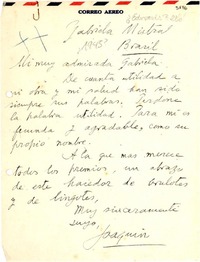 CORREO AEREO
Gabriela Mistral
1945
Brasil
Mi muy admirada Gabriela:
De cuanta utilidad a
mi obra y mi salud han sido
siempre sus palabras. Perdone
la palabra utilidad. Para mí es
fecunda y agradable, como su
propio nombre.
A la que mas merece
todos los premios, un abrazo
de este hacedor de
y de
Muy sinceramente
suyo,
Joaquín